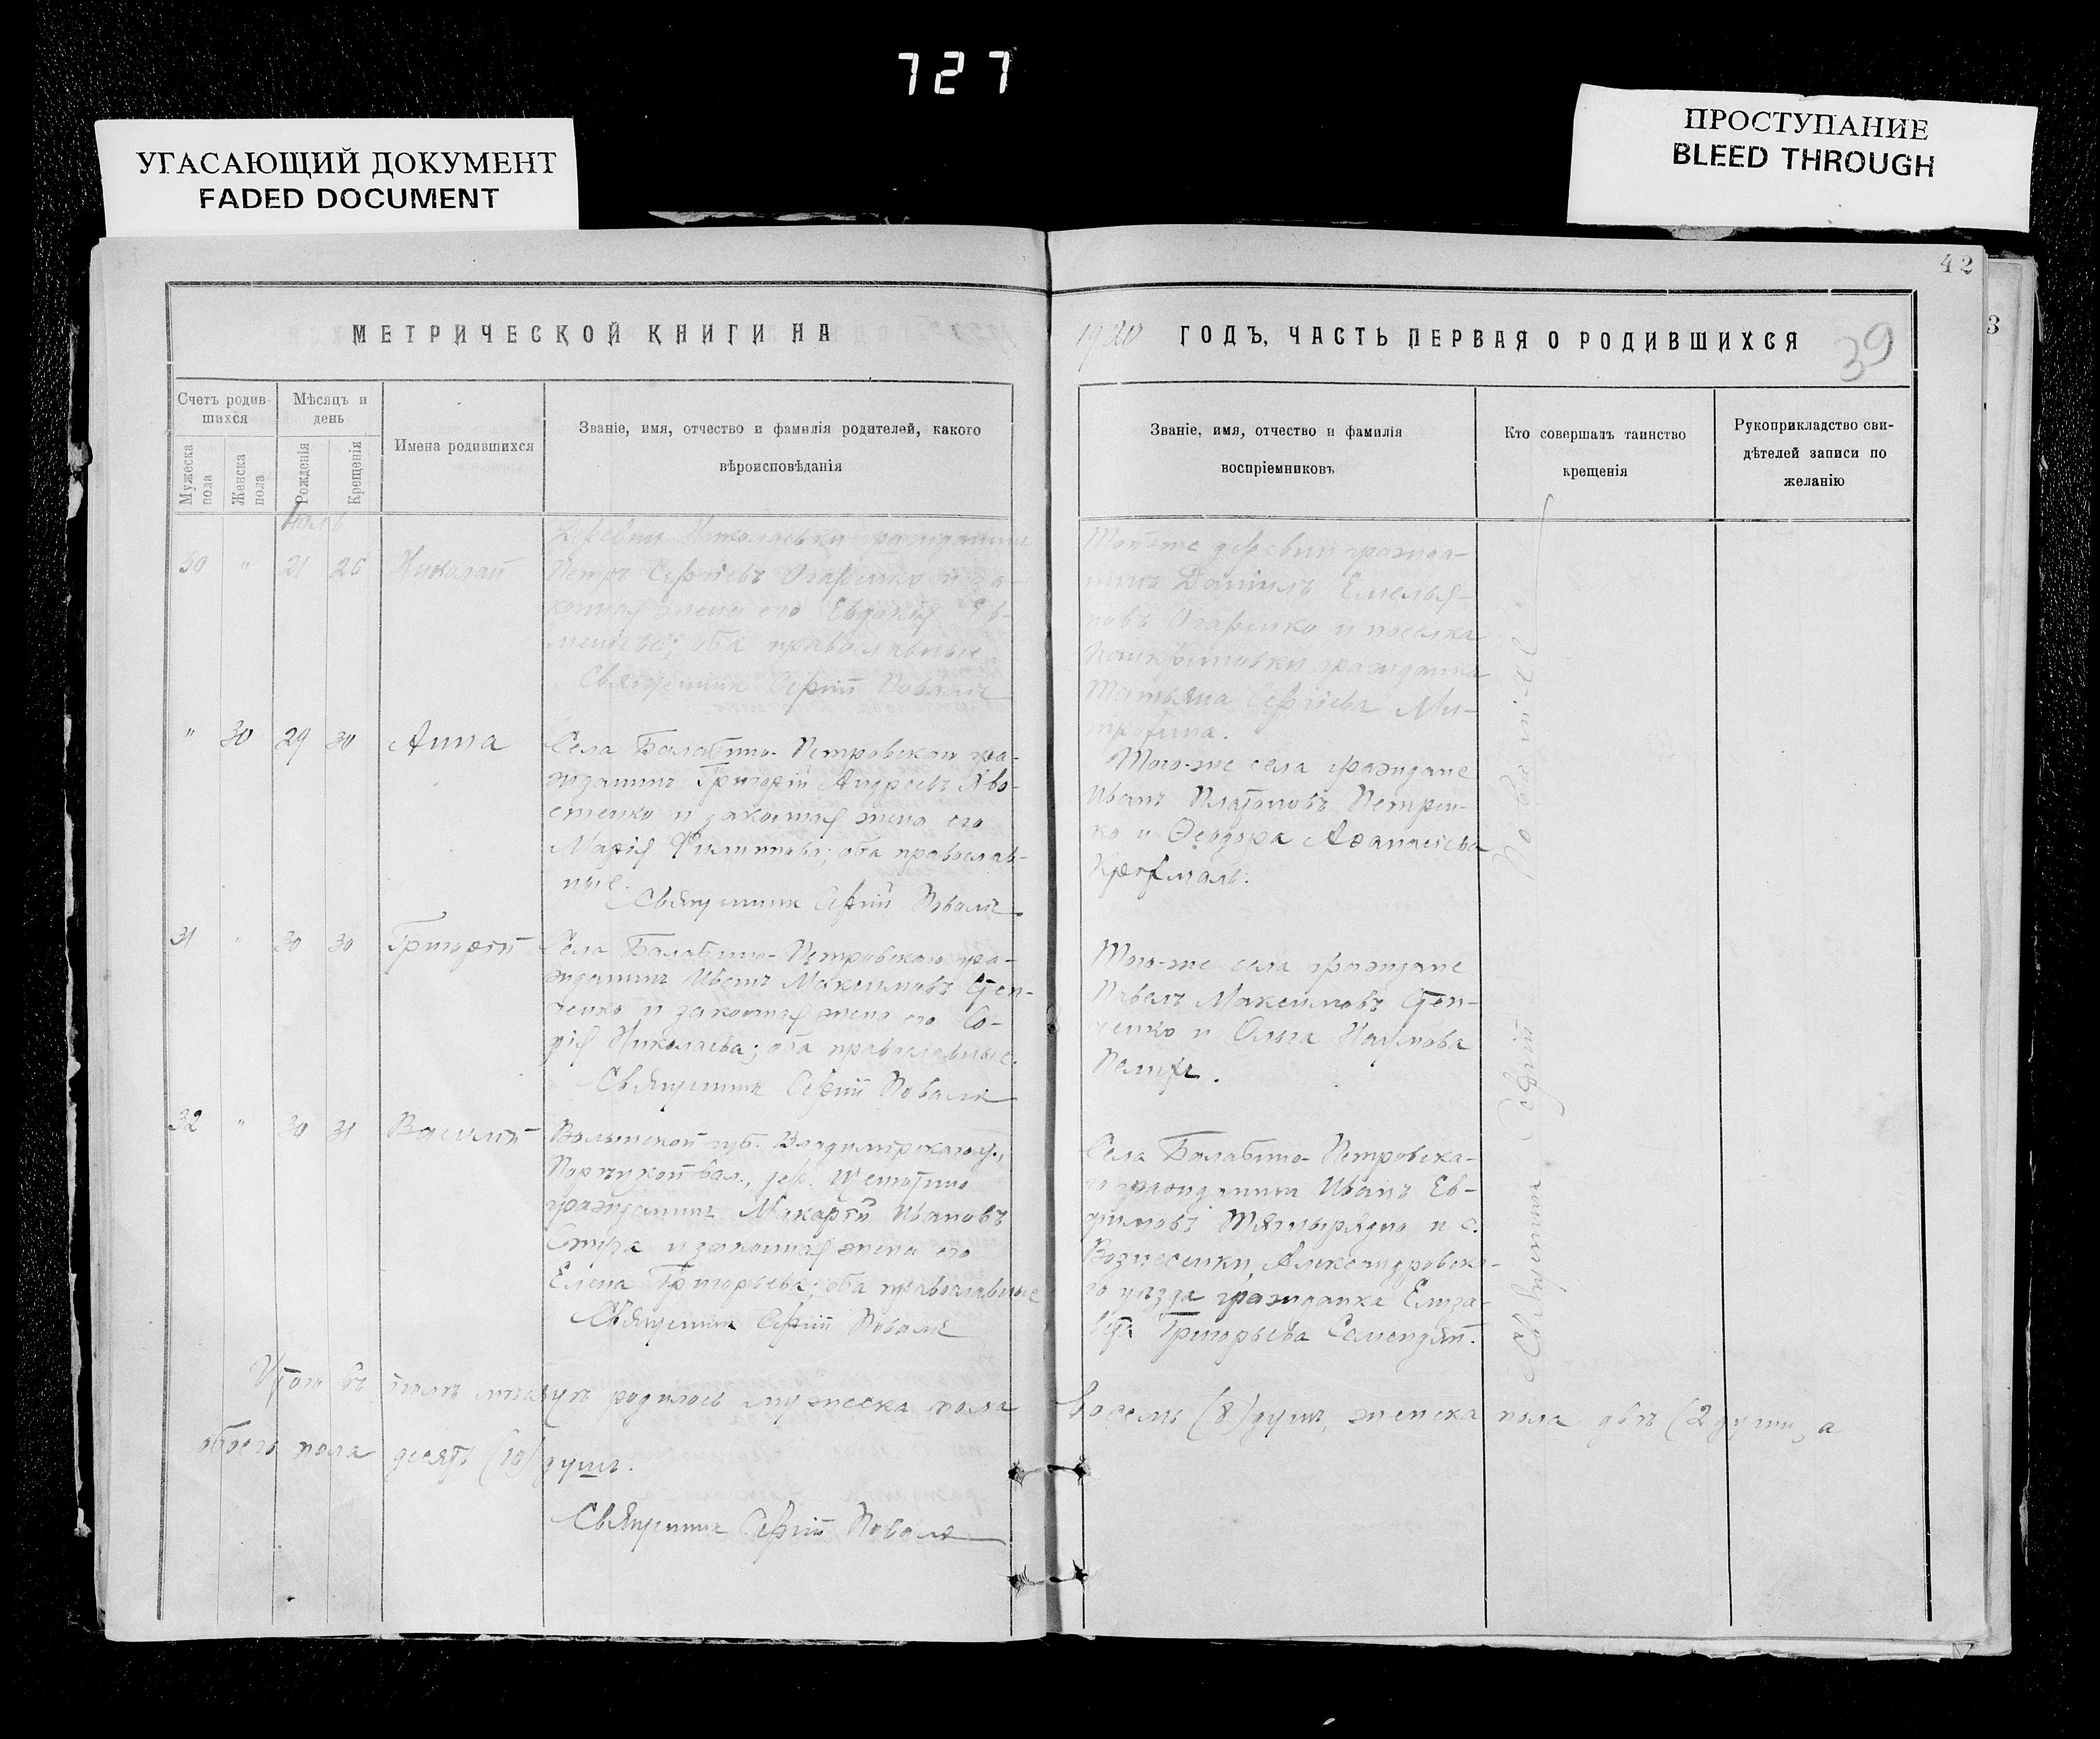 727
УГАСАЮЩИЙ ДОКУМЕНТ
FADED DOCUMENT
ПРОСТУПАНИЕ
BLEED THROUGH
42
3
МЕТРИЧЕСКОЙ КНИГИ НА
1920 ГОДЪ, ЧАСТЬ ПЕРВАЯ О РОДИВШИХСЯ
39
Счетъ родив-
шихся
Мѣсяцъ и
день
Мужеска
пола
Женска
пола
Рожденія
Крещенія
Имена родившихся
Званіе, имя, отчество и фамилія родителей, какого
вѣроисповѣданія
Званіе, имя, отчество и фамилія
воспріемниковъ
Кто совершалъ таинство
крещенія
Рукоприкладство сви-
дѣтелей записи по
желанію
30 " 21 26 Николай
Деревни Николаевки гражданинъ
Петръ Сергіевъ Огаренко и за-
конная жена его Евдокія
оба православные
Священник Сергій Коваль
Той-же деревни гражда-
нинъ Даніилъ Емелья-
новъ Огаренко и поселка
гражданка
Татьяна Сергіева Ми-
трофина.
" 30 29 30 Анна
Села Балабино-Петровскаго гра-
жданинъ Григорій Андреевъ Хво-
стенко и законная жена его
Марія Филиппова; оба православ-
ные.
Священник Сергій Коваль
Того-же села граждане
Иванъ Платоновъ Петрен-
ко и Ѳеодора Аѳанасіева
31 " 30 30 Григорій
Села Балабино-Петровскаго гра-
жданинъ Иванъ Максимовъ Степ-
ченко и законная жена его Со-
фія Николаева; оба православные.
Священник Сергій Коваль
Того-же села граждане
Павелъ Максимовъ Степ-
ченко и Ольга Наумова
32 " 30 31 Василій
Волынской губ. Владимірскаго у.,
вол., дер.
гражданинъ Макарій Ивановъ
и законная жена его
Елена Григорьева; оба православные
Священник Сергій Коваль
Села Балабино-Петровска-
го гражданинъ Иванъ Ев-
фимовъ и с.
Вознесенки, Александровска-
го уѣзда гражданка Елиза-
вета Григорьева
Священник Сергій Коваль
Итого въ іюлѣ мѣсяцѣ родилось мужеска пола восемь (8) душъ, женска пола двѣ (2 души, а
обоего пола десять (10) душъ.
Священник Сергій Коваль